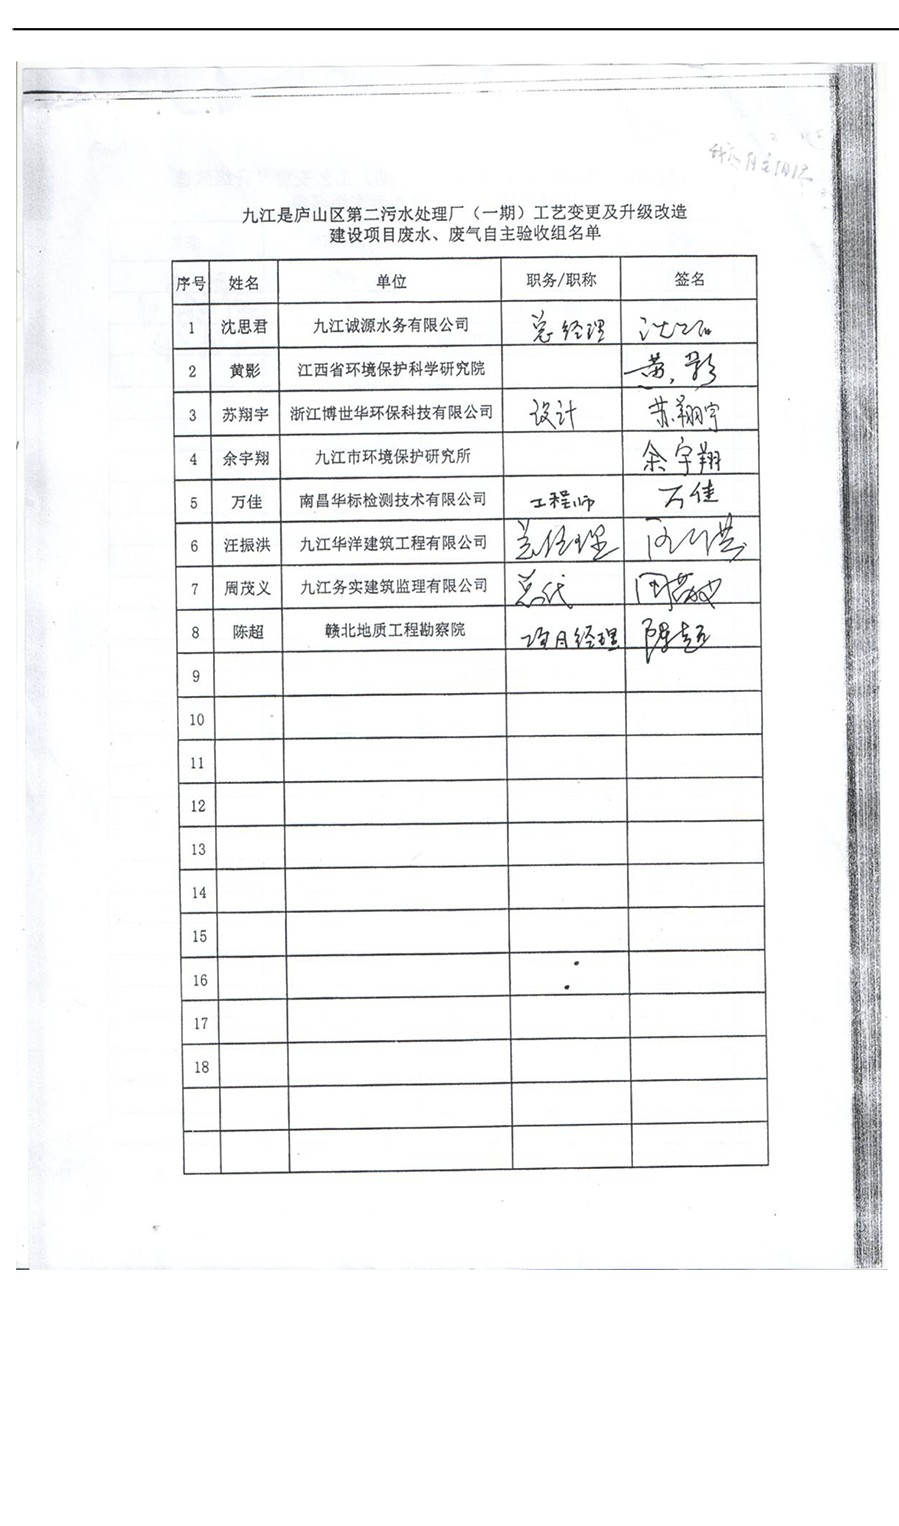 九江是庐山区第二污水处理厂（一期）工艺变更及升级改造
建设项目废水、废气自主验收组名单
序号 姓名 单位 职务/职称 签名
1 沈思君 九江诚源水务有限公司 总经理
2 黄影 江西省环境保护科学研究院 黄影
3 苏翔宇 浙江博世华环保科技有限公司 设计 苏翔宇
4 余宇翔 九江市环境保护研究所 余宇翔
5 万佳 南昌华标检测技术有限公司 工程师 万佳
6 汪振洪 九江华洋建筑工程有限公司 总经理
7 周茂义 九江务实建筑监理有限公司 总代
8 陈超 赣北地质工程勘察院 项目经理 陈超
9
10
11
12
13
14
15
16
17
18